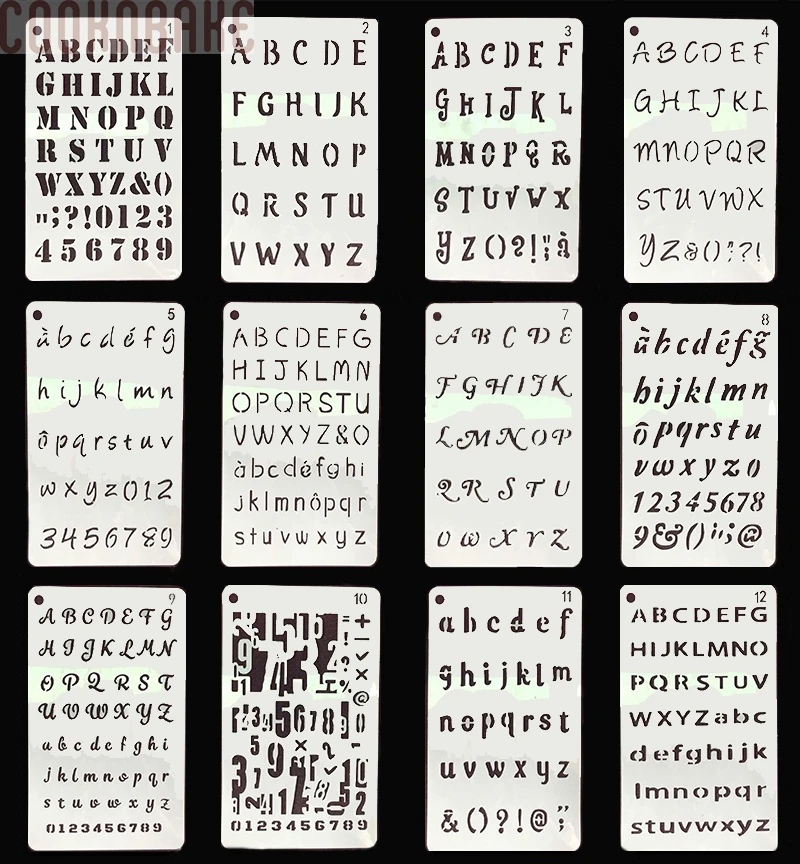 COOKNBAKE
1
ABCDEF
GHIJKL
MNOPQ
RSTUV
WXYZ&()
";?!0123
456789
2
ABCDE
FGHIJK
LMNOP
QRSTU
VWXYZ
3
ABCDEF
GHIJKL
MNOPQR
STUVWX
YZ()?!";à
4
ABCDEF
GHIJKL
MNOPQR
STUVWX
YZ&();?!
5
àbcdéfg
hijklmn
ôpqrstuv
wxyz012
3456789
6
ABCDEFG
HIJKLMN
OPQRSTU
VWXYZ&()
àbcdéfghi
jklmnôpqr
stuvwxyz
7
ABCDE
FGHIJK
LMNOP
QRSTU
VWXYZ
8
àbcdéfg
hijklmn
ôpqrstu
vwxyz0
12345678
9&()";@
9
ABCDEFG
HIJKLMN
OPQRST
UVWXYZ
abcdefghi
jklmnopqr
stuvwxyz
0123456789
10
0123456789
11
abcdef
ghijklm
nopqrst
uvwxyz
&()?!@";
12
ABCDEFG
HIJKLMNO
PQRSTUV
WXYZabc
defghijk
lmnopqr
stuvwxyz